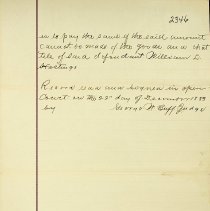 2346
is to pay the same if the said amount
cannot be made of the goods and chat
tels of said defendant William D.
Hastings
Record read and in open
Court on the 22nd day of December
by Judge